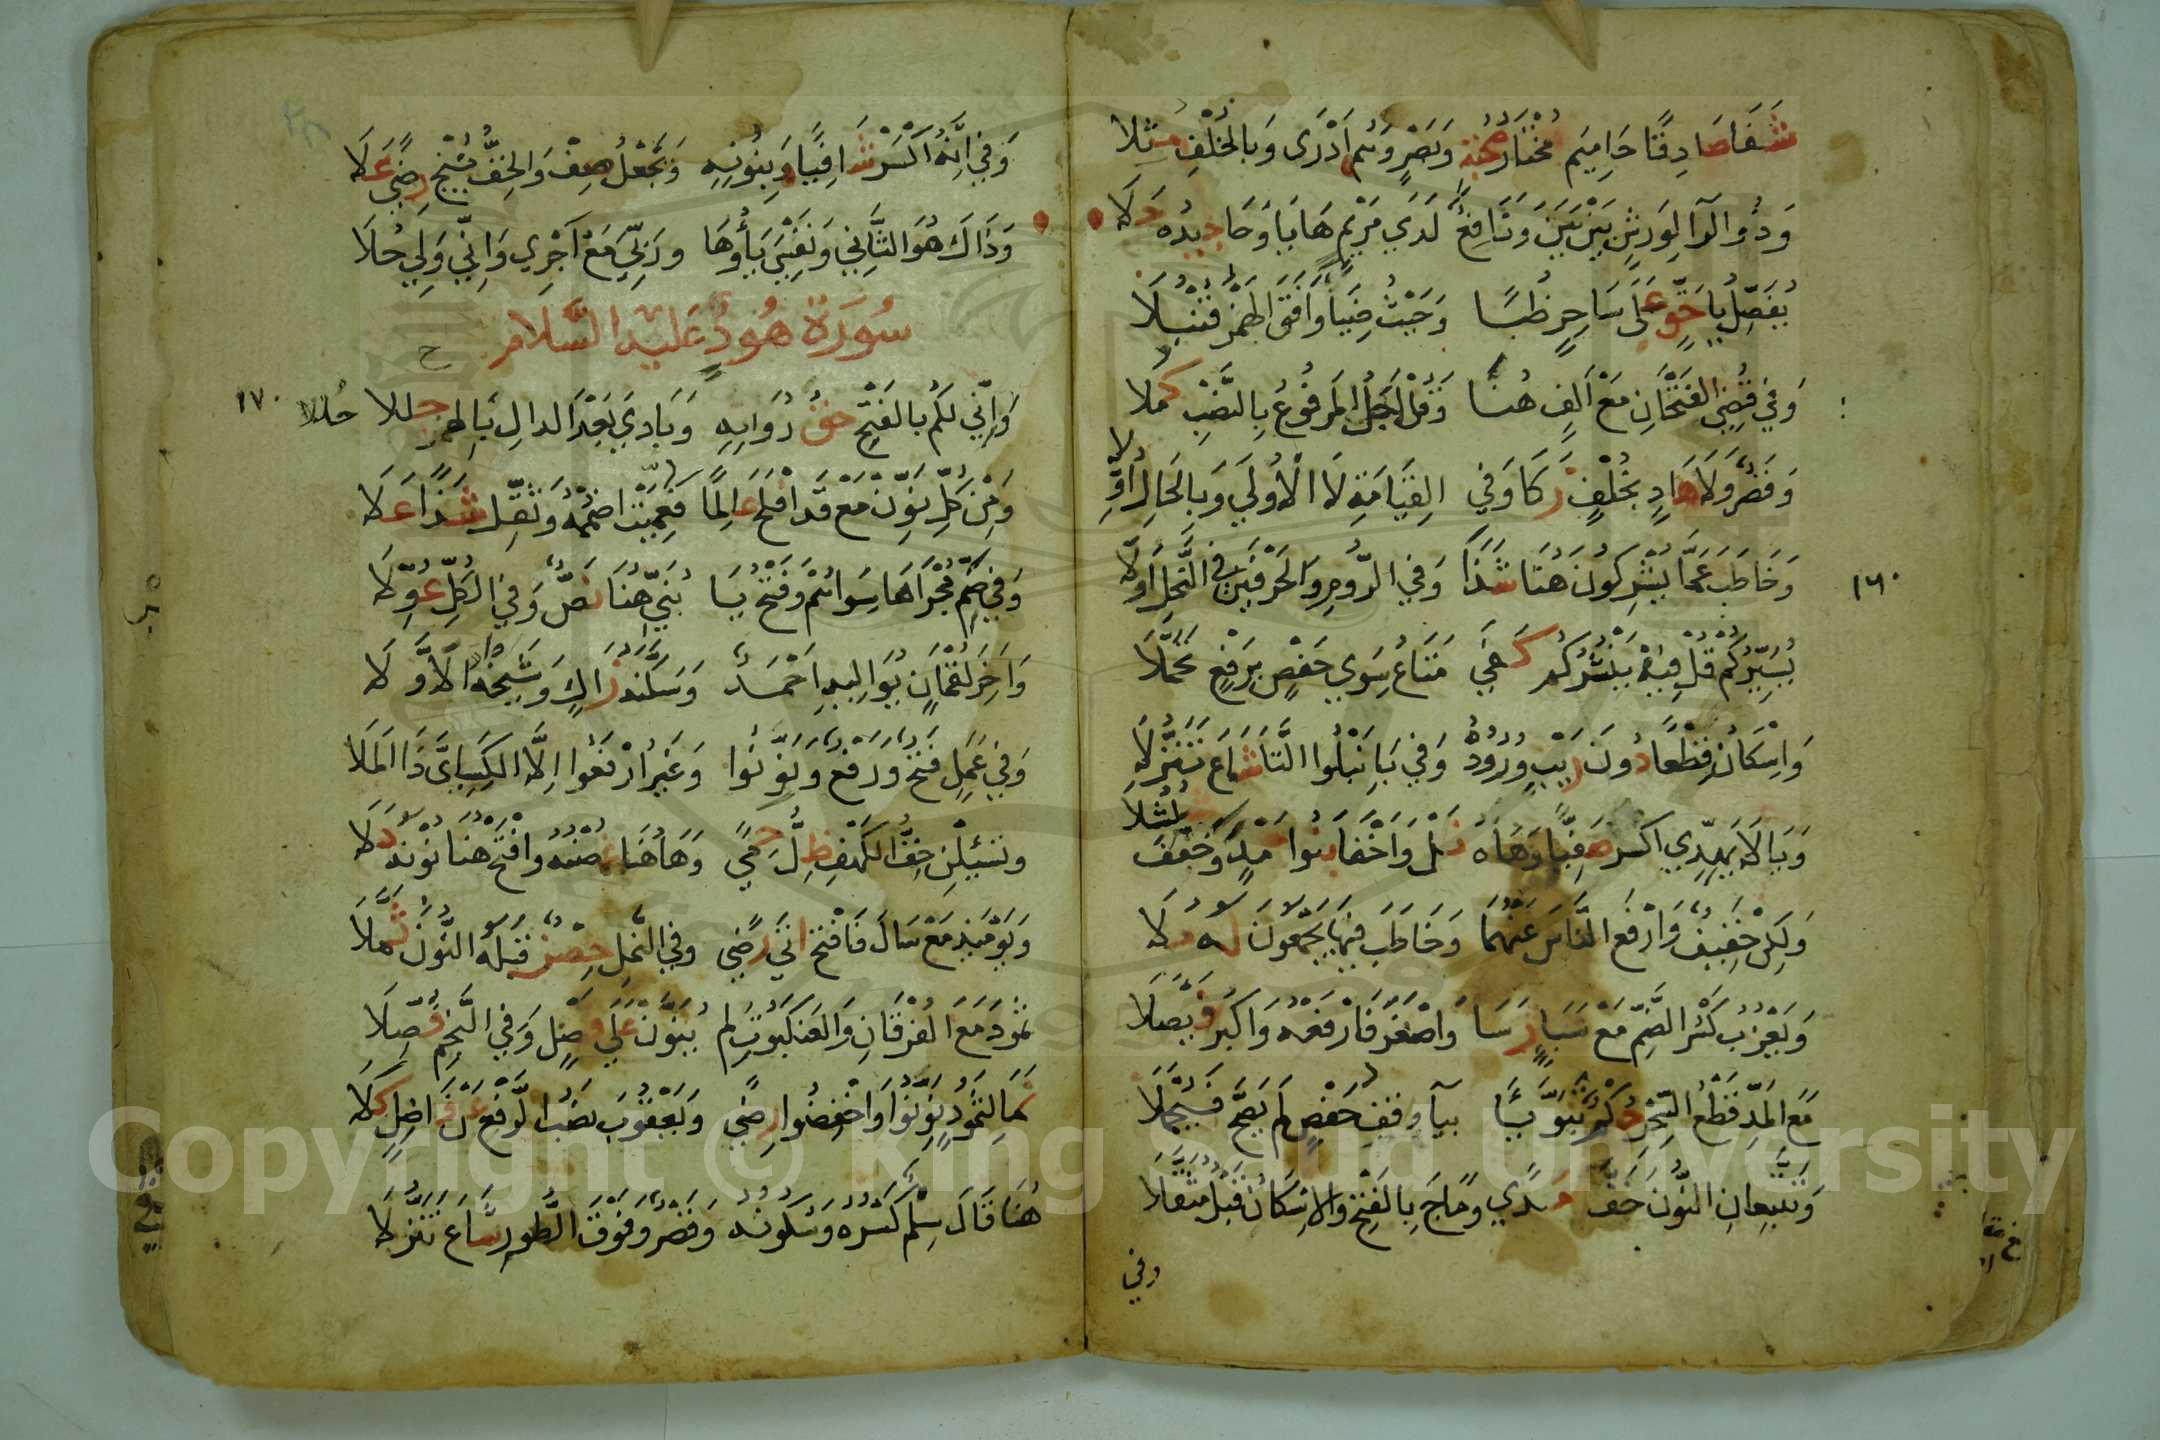 شَفَا صَادِقًا حَامِيمَ مُخْتَارُ صُحْبَةٍ وَبَصْرٍ وَهُمْ أَدْرَى وَبِالْخُلْفِ مُثِّلَا
وَذُو الرَّا لِوَرْشٍ بَيْنَ بَيْنَ وَنَافِعٌ لَدَى مَرْيَمٍ هَايَا وَحَا جِيدُهُ حَلَا
يُفَصِّلُ يَا حَقٍّ عَلَى سَاحِرٌ ظُبًا وَحَيْثُ ضِيَاءً وَافَقَ الْهَمْزُ قُنْبُلَا
وَفِي قُضِيَ الْفَتْحَانِ مَعْ أَلِفٍ هُنَا وَقُلْ أَجَلُ الْمَرْفُوعُ بِالنَّصْبِ كُمِّلَا
وَقَصْرُ وَلَا هَادٍ بِخُلْفٍ زَكَا وَفِي الْقِيَامَةِ لَا الْأُولَى وَبِالْحَالِ أُوِّلَا
وَخَاطَبَ عَمَّا يُشْرِكُونَ هُنَا شَذًا وَفِي الرُّومِ وَالْحَرْفَيْنِ فِي النَّحْلِ أَوَّلَا
١٦٠
يُسَيِّرُكُمْ قُلْ فِيهِ يَنْشُرُكُمْ كَفَى مَتَاعَ سِوَى حَفْصٍ بِرَفْعٍ تَحَمَّلَا
وَإِسْكَانُ قِطْعًا دُونَ رَيْبٍ وُرُودُهُ وَفِي بَاءِ تَبْلُوا التَّاءُ شَاعَ تَنَزُّلَا
وَيَا لَا يَهِدِّي اكْسِرْ صَفِيًّا وَهَاهُ نَلْ وَأَخْفَا بَنُوا حَمْدٍ وَخُفِّفَ شُلْشُلَا
وَلَكِنْ خَفِيفٌ وَارْفَعِ النَّاسَ عَنْهُمَا وَخَاطَبَ فِيهَا يَجْمَعُونَ لَهُ مُلَا
وَيَعْزُبُ كَسْرُ الضَّمِّ مَعْ سَبَإٍ رَسَا وَأَصْغَرَ فَارْفَعْهُ وَأَكْبَرَ فَيْصَلَا
مَعَ الْمَدِّ قَطْعُ السِّحْرِ حُكْمٌ تَبَوَّءَا بِيَا وَقْفِ حَفْصٍ لَمْ يَصِحَّ فَيُحْمَلَا
وَتَتَّبِعَانِ النُّونُ خَفَّ مَدًى وَمَاجَ بِالْفَتْحِ وَالْإِسْكَانِ قَبْلُ مُثَقَّلَا
وفي
وَفِي أَنَّهُ اكْسِرْ شَافِيًا وَبِنُونِهِ وَنَجْعَلُ صِفْ وَالْخِفُّ نُنْجِ رِضًى عَلَا
وَذَاكَ هُوَ الثَّانِي وَنَفْسِيَ يَاؤُهَا وَرَبِّيَ مَعْ أَجْرِي وَإِنِّي وَلِي حُلَا
سُورَةُ هُودٍ عَلَيْهِ السَّلَام
وَإِنِّي لَكُمْ بِالْفَتْحِ حَقُّ رُوَاتِهِ وَبَادِيَ بَعْدَ الدَّالِ بِالْهَمْزِ حُلِّلَا
حُللا ١٧٠
وَمِنْ كُلِّ نَوِّنْ مَعْ قَدَ افْلَحَ عَالِمًا فَعُمِّيَتِ اضْمُمْهُ وَثَقِّلْ شَذًا عَلَا
وَفِي ضَمِّ مُجْرَاهَا سِوَاهُمْ وَفَتْحُ يَا بُنَيِّ هُنَا نَصٌّ وَفِي الْكُلِّ عُوِّلَا
وَآخِرَ لُقْمَانٍ يُوَالِيهِ أَحْمَدٌ وَسَكَّنَهُ زَاكٍ وَشَيْخُهُ الْأَوَّلَا
وَفِي عَمَلٌ فَتْحٌ وَرَفْعٌ وَنَوِّنُوا وَغَيْرُ ارْفَعُوا إِلَّا الْكِسَائِيَّ ذَا الْمَلَا
وَتَسْئَلْنِ خِفُّ الْكَهْفِ ظِلُّ حِمًى وَهَاهُنَا غُصْنُهُ وَافْتَحْ هُنَا نُونَهُ دَلَا
وَيَوْمَئِذٍ مَعْ سَالَ فَافْتَحْ أَتَى رِضًى وَفِي النَّمْلِ حِصْنٌ قَبْلَهُ النُّونُ ثُمِّلَا
ثَمُودَ مَعَ الْفُرْقَانِ وَالْعَنْكَبُوتِ لَمْ يُنَوَّنْ عَلَى فَصْلٍ وَفِي النَّجْمِ فُصِّلَا
نَمَا لِثَمُودٍ نَوِّنُوا وَاخْفِضُوا رِضًى وَيَعْقُوبَ نَصْبُ الرَّفْعِ عَنْ فَاضِلٍ كَلَا
هُنَا قَالَ سِلْمٌ كَسْرُهُ وَسُكُونُهُ وَقَصْرٌ وَفَوْقَ الطُّورِ شَاعَ تَنَزُّلَا
Copyright © King Saud University